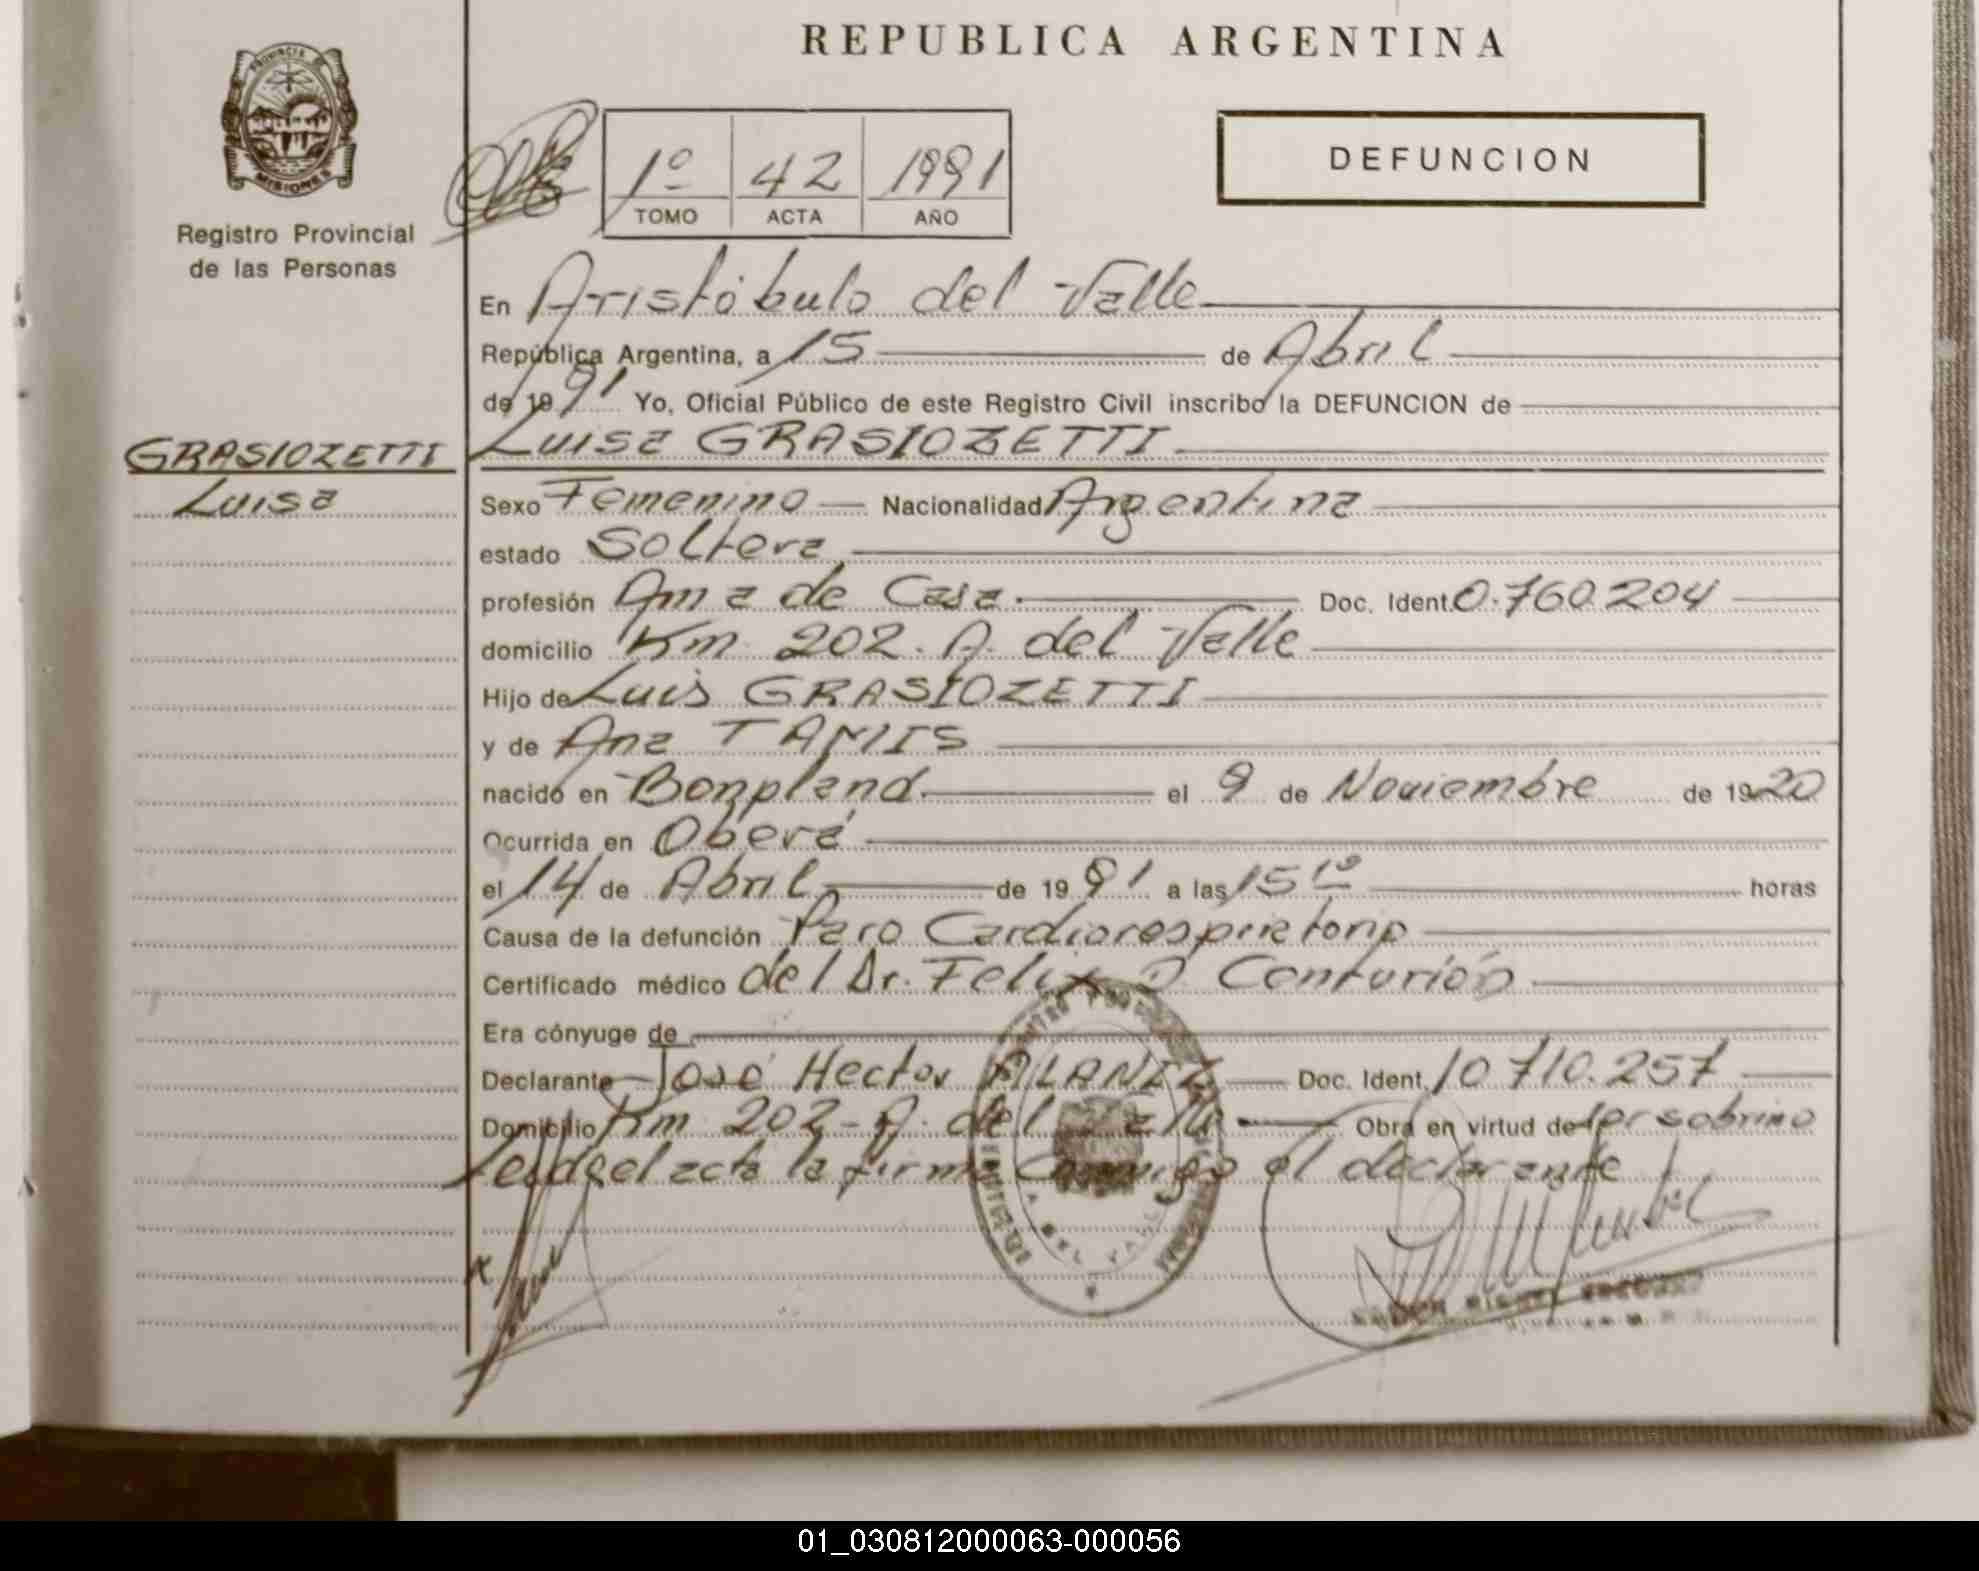 REPUBLICA ARGENTINA
PROVINCIA DE
MISIONES
Registro Provincial
de las Personas
1º 42 1991
TOMO ACTA AÑO
DEFUNCION
En Aristóbulo del Valle
República Argentina, a 15 de Abril
de 1991 Yo, Oficial Público de este Registro Civil inscribo la DEFUNCION de
GRASIOZETTI
Luisa
Luisa GRASIOZETTI
Sexo Femenino Nacionalidad Argentina
estado Soltera
profesión Ama de Casa. Doc. Ident. 0.760.204
domicilio Km 202. A. del Valle
Hijo de Luis GRASIOZETTI
y de Ana TAMIS
nacido en Bonpland el 9 de Noviembre de 1920
Ocurrida en Oberá
el 14 de Abril de 1991 a las 15 1º horas
Causa de la defunción Paro Cardiorespiratorio
Certificado médico del Dr. Felix D. Centurión
Era cónyuge de
Declarante José Hector ALANIZ Doc. Ident. 10.710.257
Domicilio Km 202 - A. del Valle Obra en virtud de ser sobrino
Leida el acta la firma conmigo el declarante
01_030812000063-000056